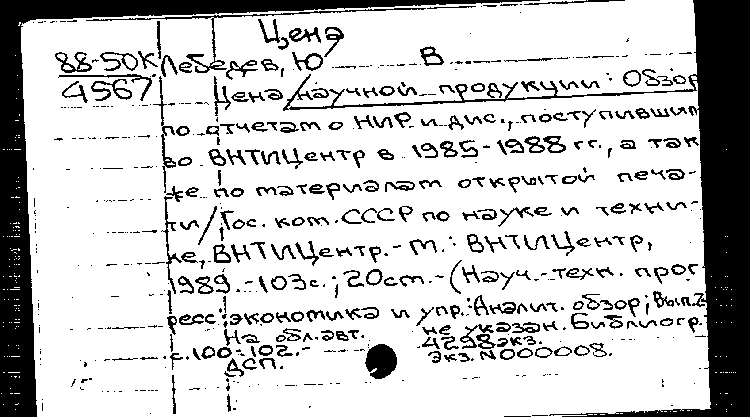 Цена
88-50К Лебедев, Ю В
4567 Цена научной продукции: Обзор
по отчетам о НИР и дис., поступившим
во ВНТИЦентр в 1985-1988 гг., а так
же по материалам открытой печа-
ти/Гос. ком. СССР по науке и техни-
ке, ВНТИЦентр.- М.: ВНТИЦентр,
1989.-103с.; 20см.-(Науч.-техн. прог
ресс: экономика и упр.: Аналит. обзор; Вып.2
На обл. авт. не указан. Библиогр.
с.100-102.- 4298экз.
ДСП. Экз. N000008.